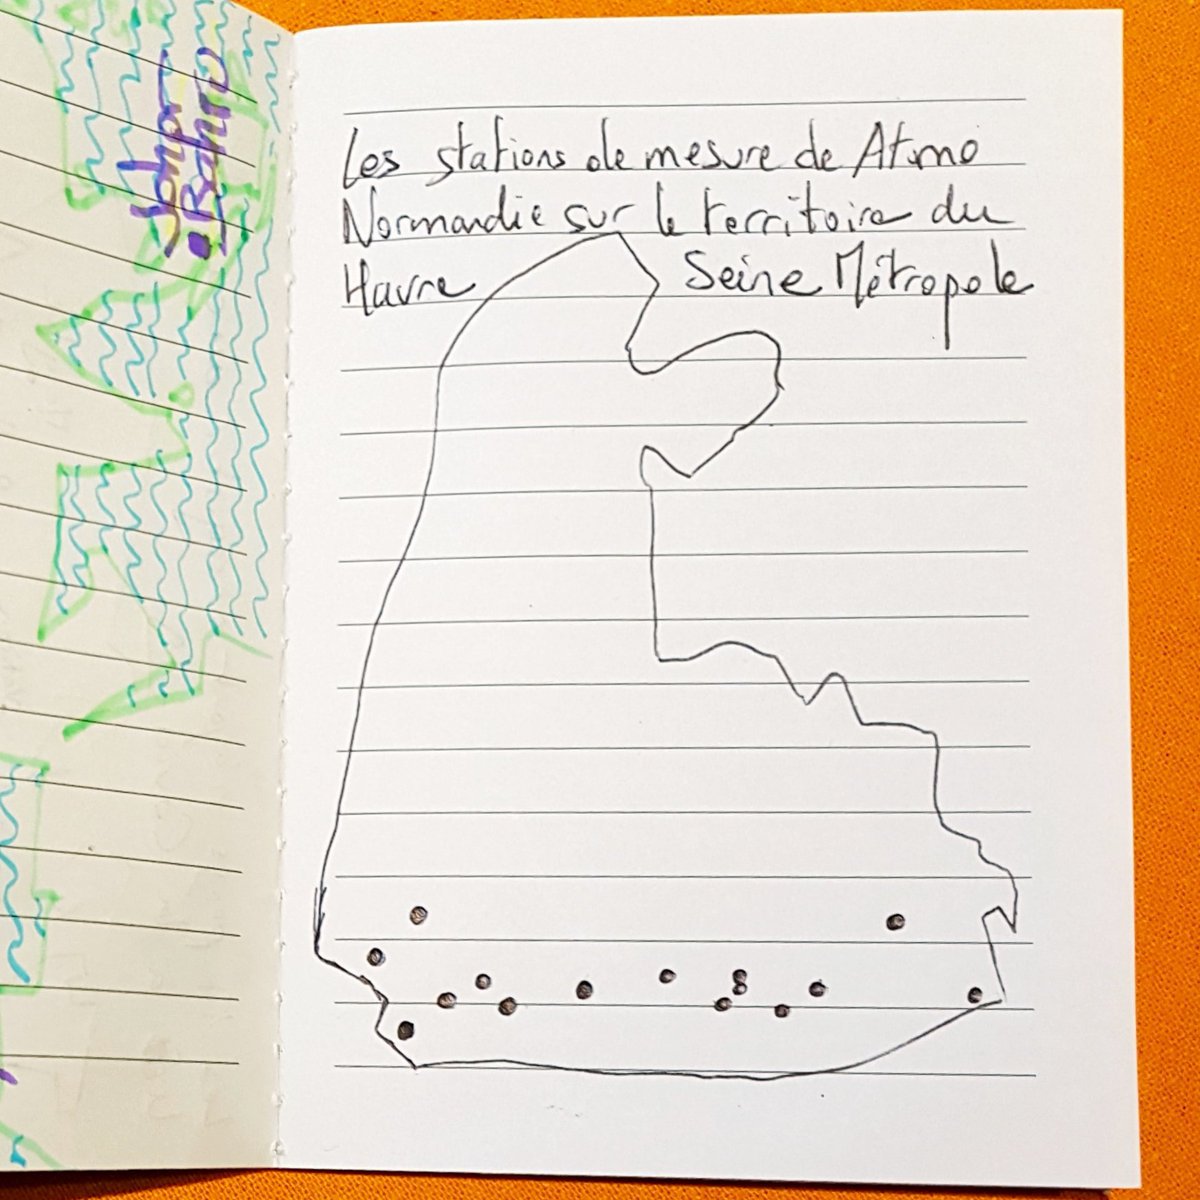 Les stations de mesure de Atmo
Normandie sur le territoire du
Havre Seine Métropole